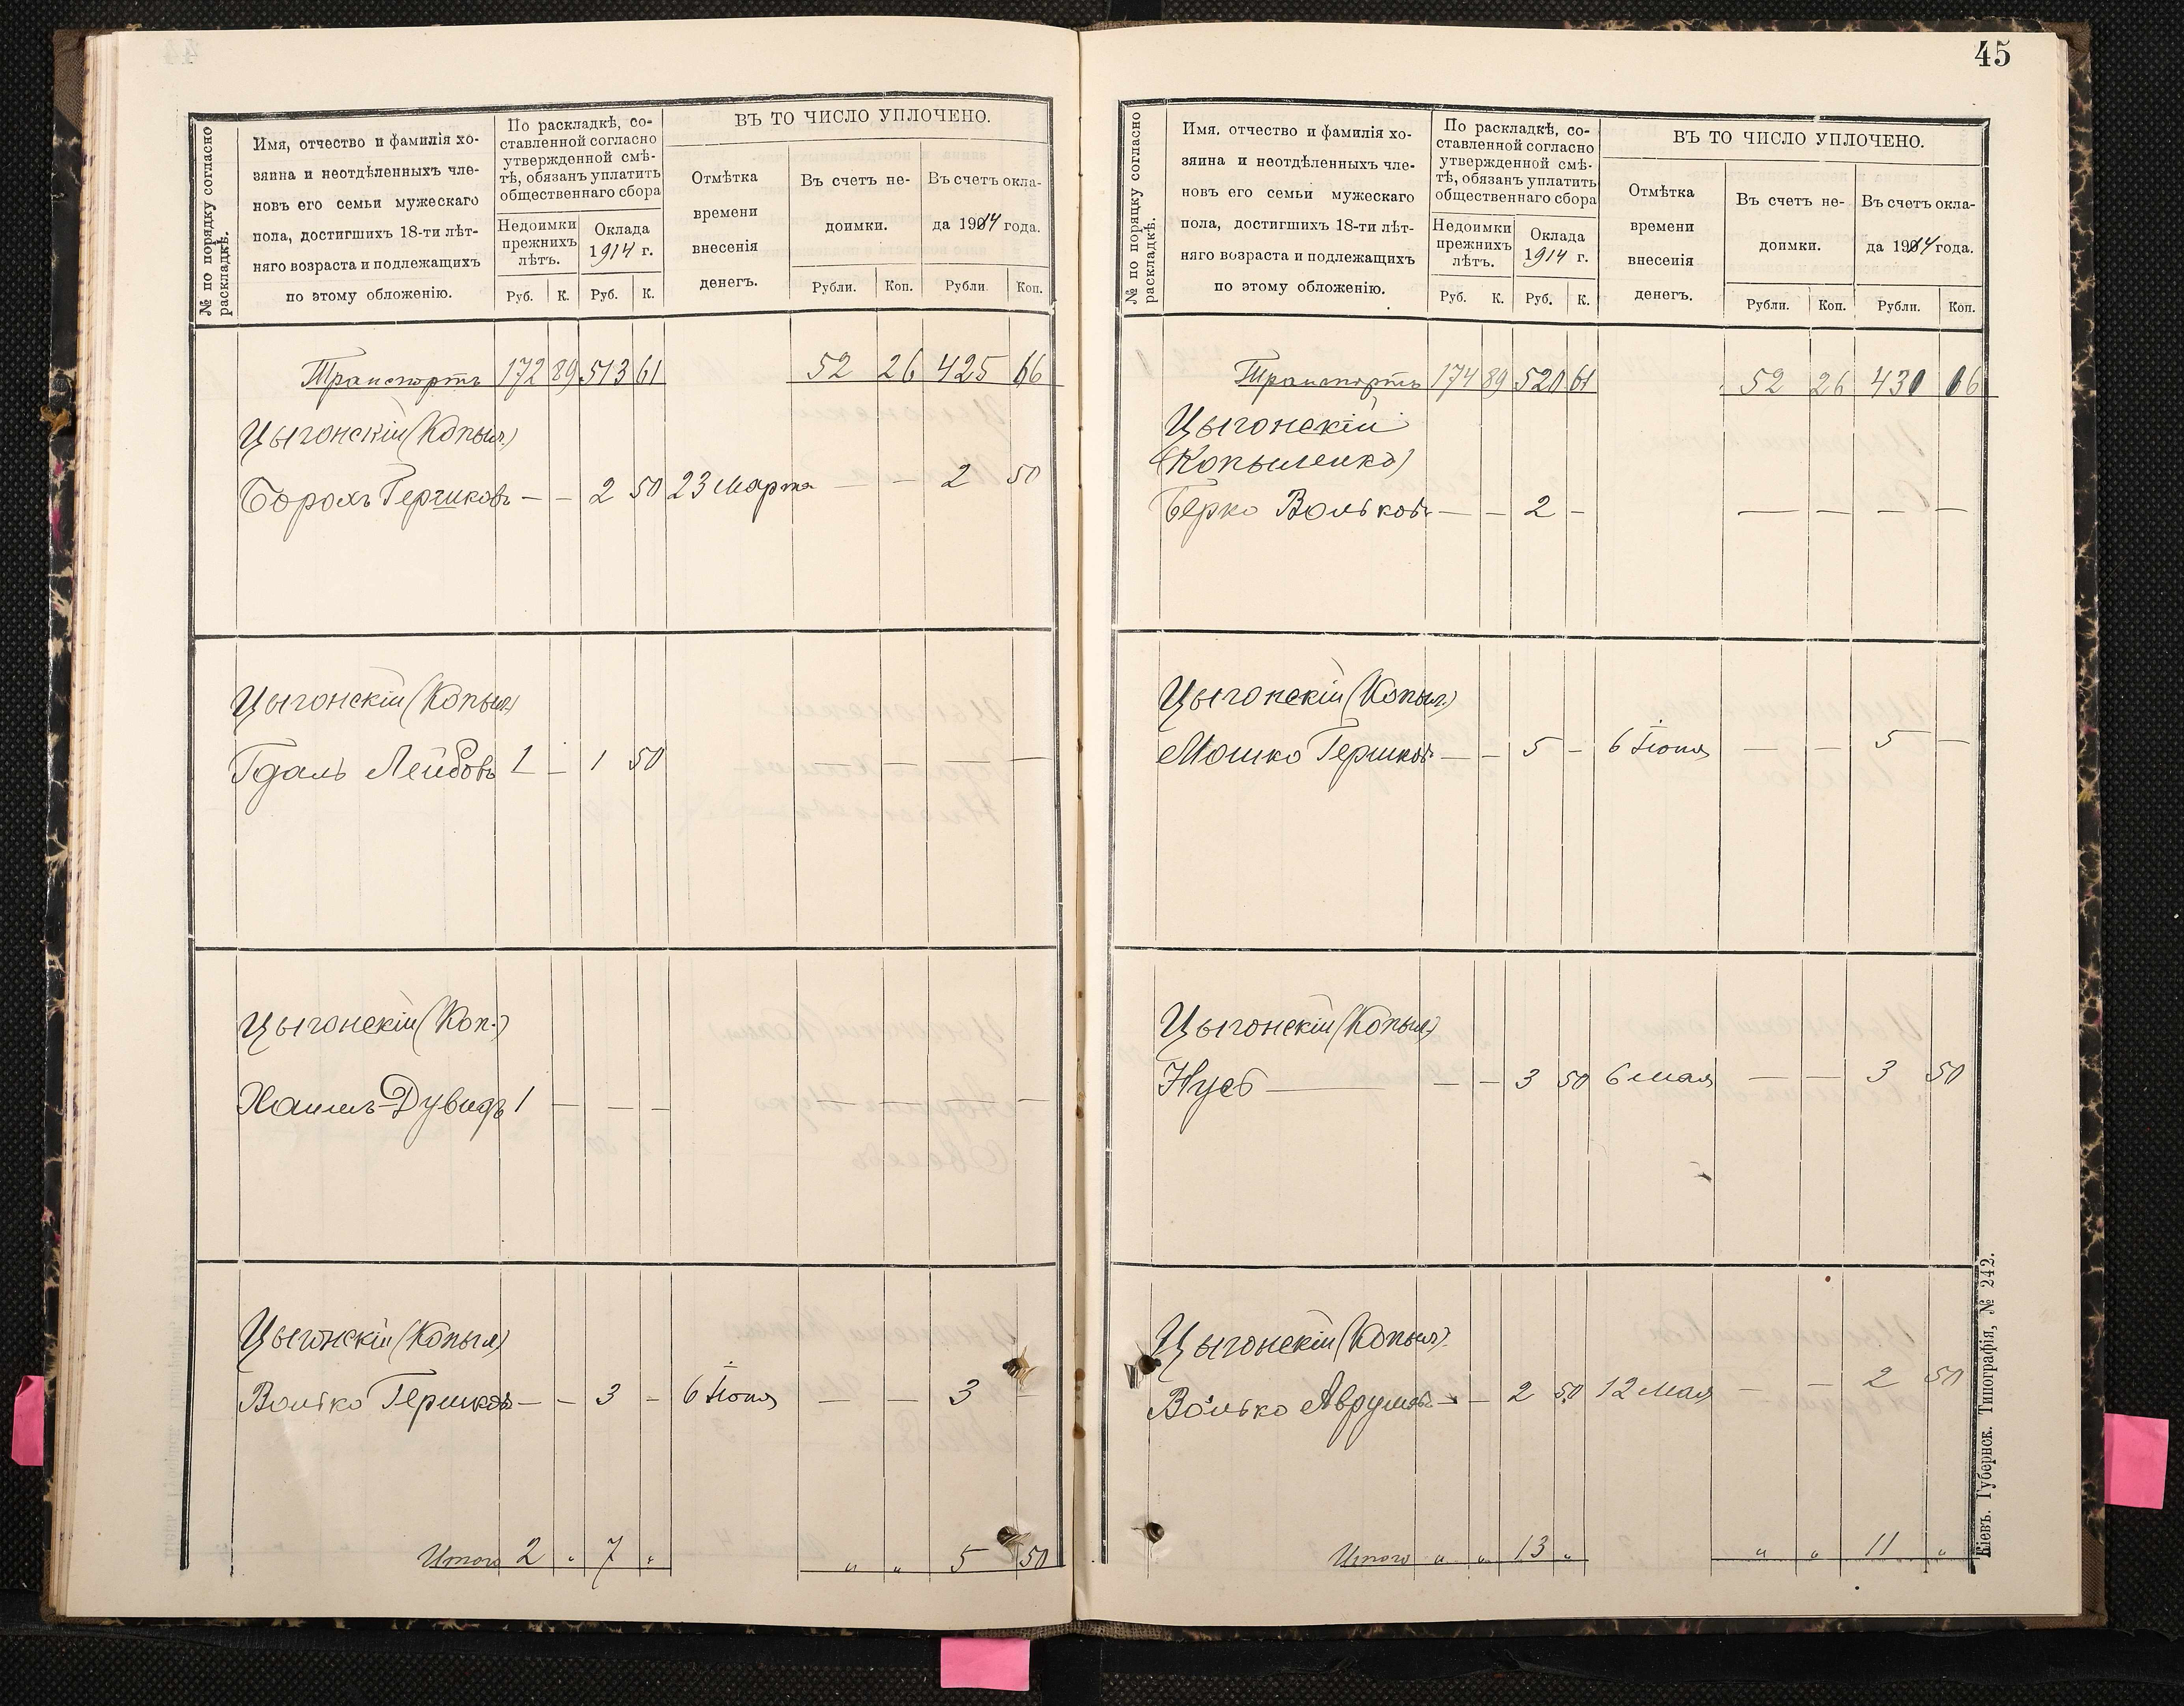 № по порядку согласно
раскладкѣ.
Имя, отчество и фамилія хо-
зяина и неотдѣленныхъ чле-
новъ его семьи мужескаго
пола, достигшихъ 18-ти лѣт-
няго возраста и подлежащихъ
по этому обложенію.
По раскладкѣ, со-
ставленной согласно
утвержденной смѣ-
тѣ, обязанъ уплатить
общественнаго сбора
Недоимки
прежнихъ
лѣтъ.
Оклада
1914 г.
Руб. К. Руб. К.
ВЪ ТО ЧИСЛО УПЛОЧЕНО.
Отмѣтка
времени
внесенія
денегъ.
Въ счетъ не-
доимки.
Въ счетъ окла-
да 1914 года.
Рубли. Коп. Рубли. Коп.
Транспортъ 172 89 513 61 52 26 425 66
Цыгонскій (Копыл)
Борохъ Гершковъ — — 2 50 23 Марта — — 2 50
Цыгонскій (Копыл)
Гдаль Лейбовъ 1 — 1 50 — — — —
Цыгонскій (Коп.)
Хаимъ-Дувидъ 1 — — — — — — —
Цыгонскій (Копыл)
Волько Гершковъ — — 3 — 6 Іюня — — 3 —
Итого 2 „ 7 „ „ „ 5 50
45
№ по порядку согласно
раскладкѣ.
Имя, отчество и фамилія хо-
зяина и неотдѣленныхъ чле-
новъ его семьи мужескаго
пола, достигшихъ 18-ти лѣт-
няго возраста и подлежащихъ
по этому обложенію.
По раскладкѣ, со-
ставленной согласно
утвержденной смѣ-
тѣ, обязанъ уплатить
общественнаго сбора
Недоимки
прежнихъ
лѣтъ.
Оклада
1914 г.
Руб. К. Руб. К.
ВЪ ТО ЧИСЛО УПЛОЧЕНО.
Отмѣтка
времени
внесенія
денегъ.
Въ счетъ не-
доимки.
Въ счетъ окла-
да 1914 года.
Рубли. Коп. Рубли. Коп.
Транспортъ 174 89 520 61 52 26 431 16
Цыгонскій
(Копыленко)
Берко Вольковъ — — 2 — — — — —
Цыгонскій (Копыл.)
Мошко Гершковъ — — 5 — 6 Іюня — — 5 —
Цыгонскій (Копыл)
Нусъ — — — 3 50 6 мая — — 3 50
Цыгонскій (Копыл)
Волько Аврумовъ — — 2 50 12 Мая — — 2 50
Итого „ „ 13 „ „ „ 11 „
Кіевъ. Губернск. Типографія, № 242.